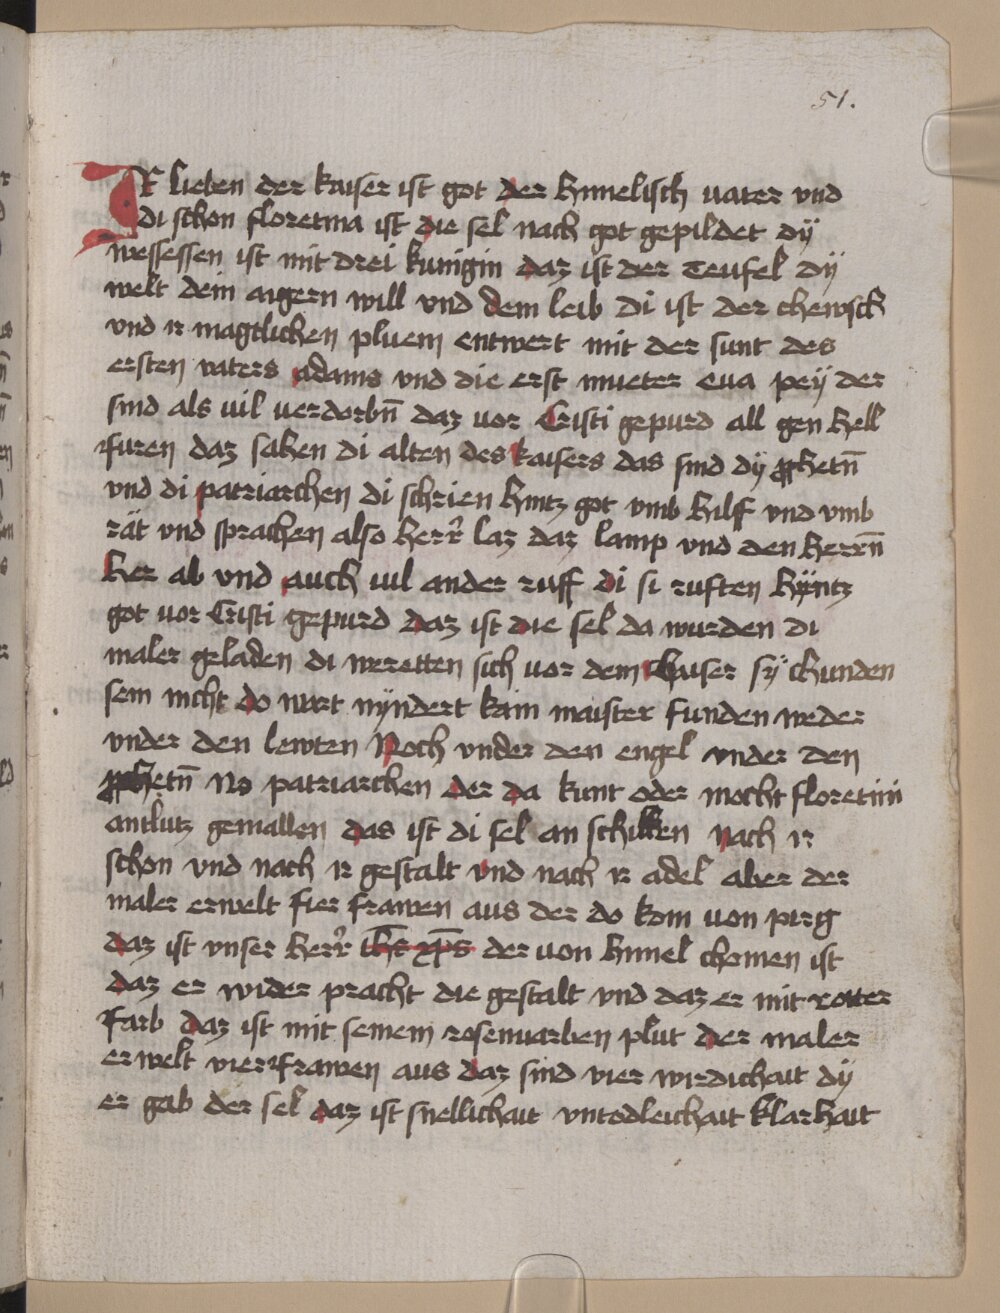 51.
Ir lieben der kaiser ist got der himelisch vater vnd
di schon floretina ist die sel nach got gepildet dÿ
wessessen ist mit drei kunigin daz ist der teufel dÿ
welt dein aigern will vnd dem leib di ist der chewsch
vnd ir magtlichen pluem entwert mit der sunt des
ersten vaters adams vnd die erst mueter eua peÿ der
sind als vil verdorbn̄ daz vor Cristi gepurd all gen hell
furen daz sahen di alten des kaisers das sind dÿ ꝓphetn̄
vnd di patriarchen di schrien hintz got vmb hilf vnd vmb
rät vnd sprachen also herr̄ laz daz lamp vnd den herrn̄
her ab vnd auch vil ander ruff di si ruften hÿntz
got vor Cristi gepurd daz ist die sel da wurden di
maler geladen di weretten sich vor dem chaiser sÿ chunden
sein nicht do wart nÿndert kain maister funden weder
vnder den lewten Noch vnder den engel vnder den
ꝓphetn̄ No patriarchen der da kunt oder mocht floretini
antlutz gemallen das ist di sel an schikken nach ir
schon vnd nach ir gestalt vnd nach ir adel aber der
maler erwelt fier frawen aus der do kom von pirg
daz ist vnser herr̄ ih̄s xp̄s der von himel chomen ist
daz er wider pracht die gestalt vnd daz er mit rotter
farb daz ist mit seinem rosenuarben plut der maler
erwelt vier frawen aus daz sind vier wirdichait dÿ
er gab der sel daz ist snellichait vntodleichait klarhait